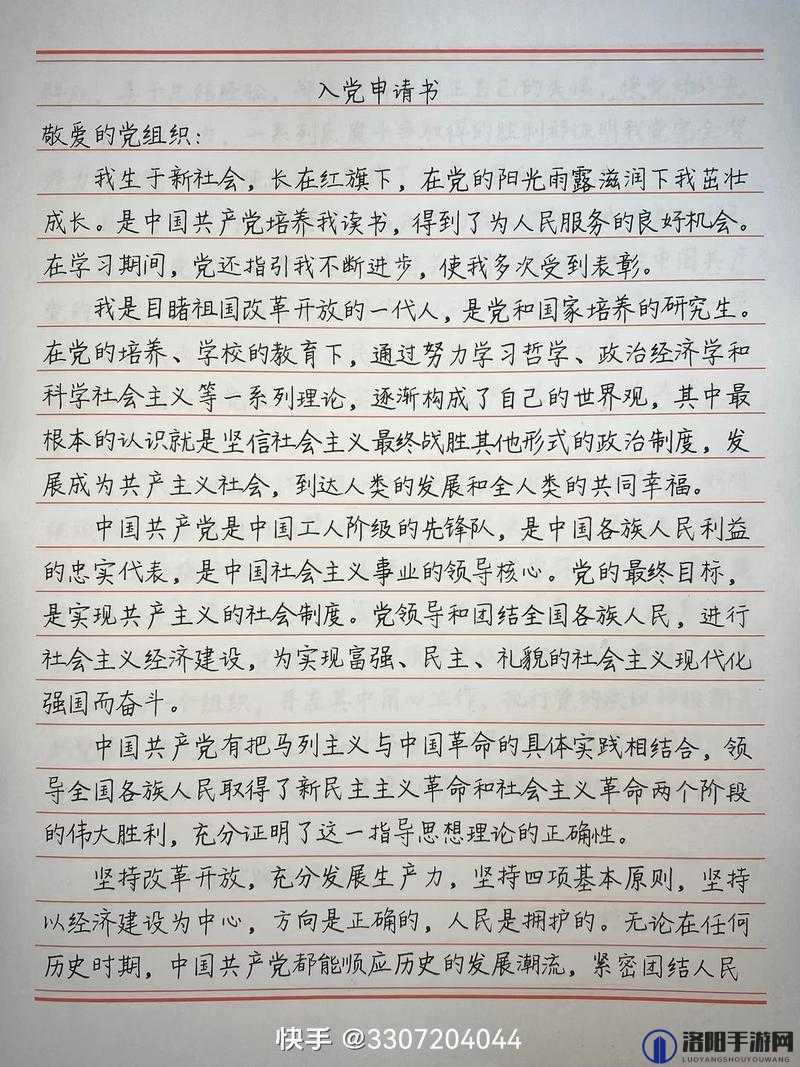 入党申请书
敬爱的党组织：
我生于新社会，长在红旗下，在党的阳光雨露滋润下我茁壮
成长。是中国共产党培养我读书，得到了为人民服务的良好机会。
在学习期间，党还指引我不断进步，使我多次受到表彰。
我是目睹祖国改革开放的一代人，是党和国家培养的研究生。
在党的培养、学校的教育下，通过努力学习哲学、政治经济学和
科学社会主义等一系列理论，逐渐构成了自己的世界观，其中最
根本的认识就是坚信社会主义最终战胜其他形式的政治制度，发
展成为共产主义社会，到达人类的发展和全人类的共同幸福。
中国共产党是中国工人阶级的先锋队，是中国各族人民利益
的忠实代表，是中国社会主义事业的领导核心。党的最终目标，
是实现共产主义的社会制度。党领导和团结全国各族人民，进行
社会主义经济建设，为实现富强、民主、礼貌的社会主义现代化
强国而奋斗。
中国共产党有把马列主义与中国革命的具体实践相结合，领
导全国各族人民取得了新民主主义革命和社会主义革命两个阶段
的伟大胜利，充分证明了这一指导思想理论的正确性。
坚持改革开放，充分发展生产力，坚持四项基本原则，坚持
以经济建设为中心，方向是正确的，人民是拥护的。无论在任何
历史时期，中国共产党都能顺应历史的发展潮流，紧密团结人民
快手 @3307204044
洛阳手游网
LUOYANGSHOUYOUWANG